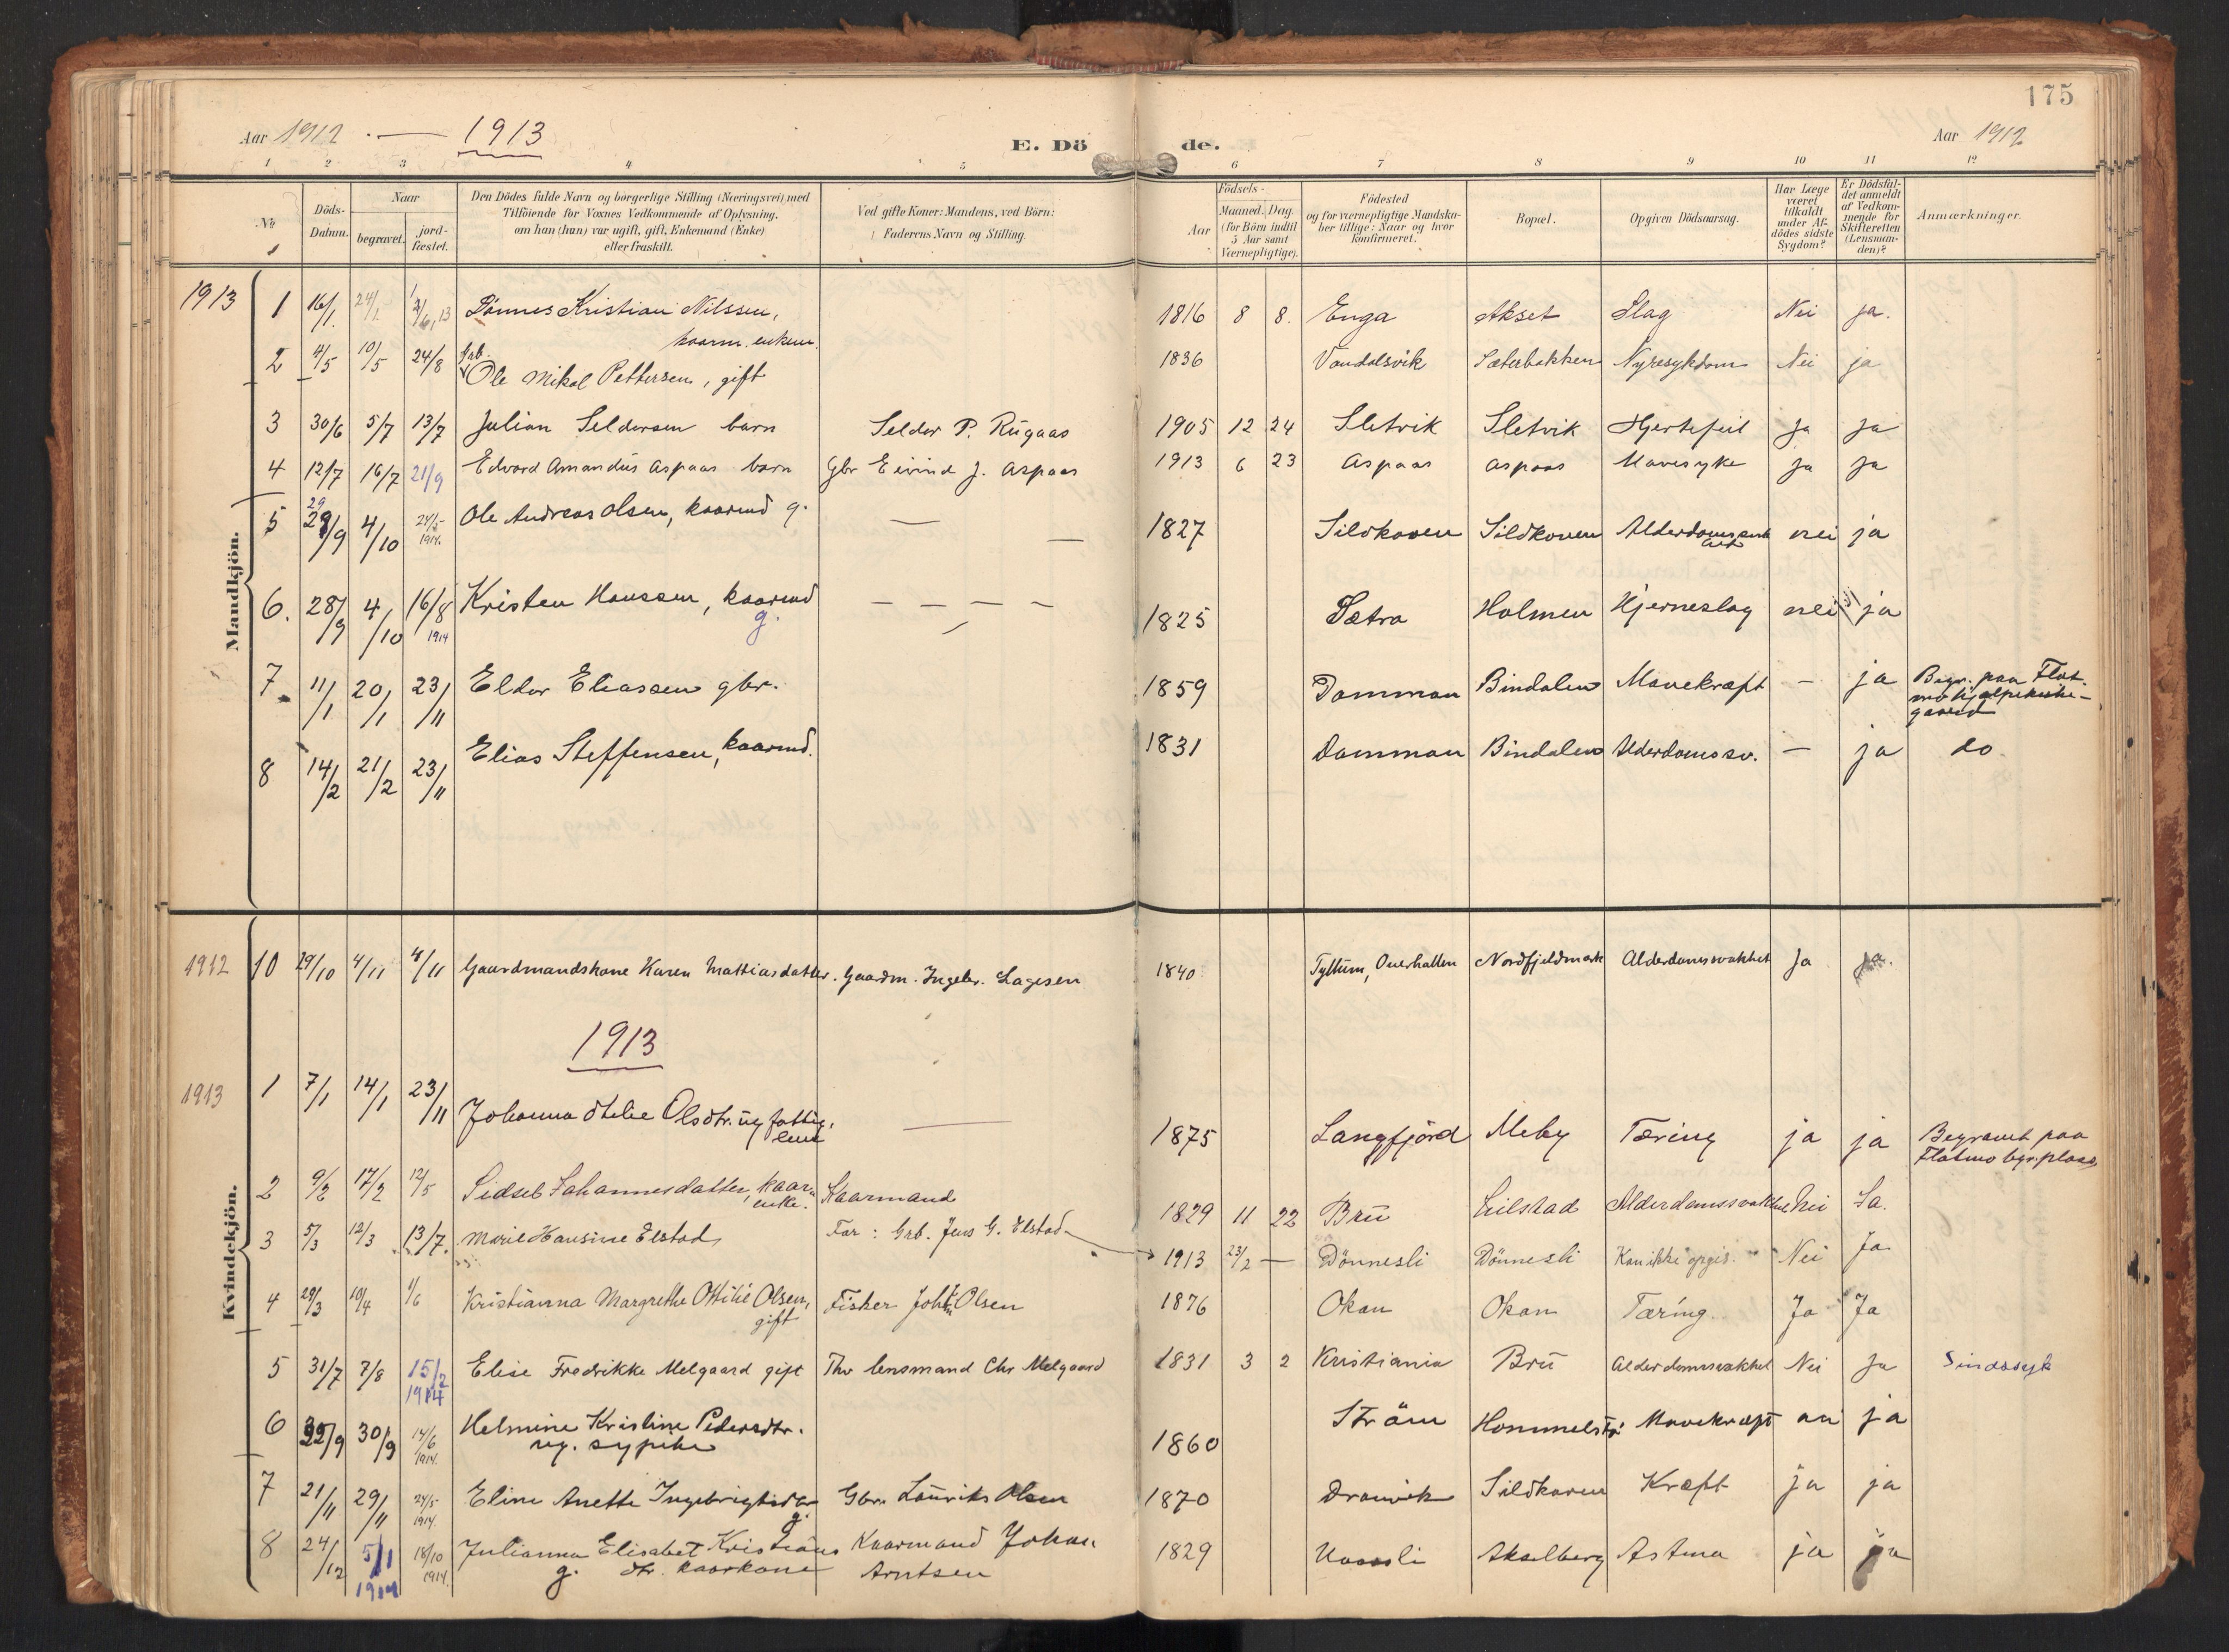 175
Aar 1912 — 1913
E. Döde.
Aar 1912
1 2 3 4 5 6 7 8 9 10 11 12
No
Döds-Datum.
Naar
begravet.
jord-fæstet.
Den Dödes fulde Navn og borgerlige Stilling (Næringsvei) med
Tilföiende for Voxnes Vedkommende af Oplysning,
om han (hun) var ugift, gift, Enkemand (Enke)
eller fraskilt.
Ved gifte Koner: Mandens, ved Börn:
Faderens Navn og Stilling.
Födsels-
Aar
Maaned. Dag
(for Börn indtil
5 Aar samt
Værnepligtige).
Födested
og for værnepligtige Mandska-
ber tillige: Naar og hvor
konfirmeret.
Bopæl.
Opgiven Dödsaarsag.
Har Læge
været
tilkaldt
under Af-
dödes sidste
Sygdom?
Er Dödsfal-
det anmeldt
af Vedkom-
mende for
Skifteretten
(Lensman-
den)?
Anmærkninger.
Mandkjön.
1913 1 16/1 24/1 Dönnes Kristian Nilssen, kaarm. enkem. 1816 8 8. Enga Akset Slag Nei ja.
2 4/5 10/5 24/8 Grb. Ole Mikal Pettersen, gift 1836 Vandalsvik Sæterbakken Nyresykdom Nei ja
3 30/6 5/7 13/7 Julian Seldersen barn Selder P. Rugaas 1905 12 24 Sletvik Sletvik Hjertefeil Ja Ja
4 12/7 16/7 21/9 Edvard Amandus Aspaas barn Gbr Eivind J. Aspaas 1913 6 23 Aspaas Aspaas Mavesyke Ja Ja
5 29/9 4/10 24/5 1914. Ole Andreas Olsen, kaarmd g. — 1827 Sildkoven Sildkoven nei ja
6. 28/9 4/10 16/8 1914 Kristen Hanssen, kaarmd g. — — — — 1825 Sætra Holmen Hjerneslag nei ja
7 11/1 20/1 23/11 Eldor Eliassen gbr. 1859 Damman Bindalen Mavekræft — ja Begr. paa Flat-
mo hjælpekirke-
gaard
8 14/2 21/2 23/11 Elias Steffensen, kaarmd. 1831 Damman Bindalen Alderdomssv. — ja do
Kvindekjön.
1912 10 29/10 4/11 4/11 Gaardmandskone Karen Mattiasdatter. Gaardm. Ingebr. Lagesen 1840 Tyltum, Overhallen Nordfjeldmark Alderdomssvakhet Ja ja.
1913
1913 1 7/1 14/1 23/11 Johanna Otelie Olsdtr. ug fattig-
lem — 1875 Langfjord Meby Tæring ja ja Begravet paa
Flatmo bgr.plass
2 9/2 17/2 12/5 Sidsel Johannesdatter, kaar-
enke. Kaarmand 1829 11 22 Brü Lilstad Alderdomssvakhet Nei Ja.
3 5/3 12/3 13/7. Marie Hansine Elstad Far: Grb. Jens G. Elstad 1913 23/2 — Dönnesli Dönnesli Kan ikke opgis. Nei Ja
4 29/3 10/4 1/6 Kristianna Margrethe Ottilie Olsen,
gift Fisker Olsen 1876 Okan Okan Tæring. Ja Ja
5 31/7 7/8 15/2 1914 Elise Fredrikke Melgaard gift Thv lensmand Chr Melgaard 1831 3 2 Kristiania Brü Alderdomssvakhet Nei Ja Sindssyk
6 /9 30/9 14/6 1914. Helmine Kristine Pedersdtr.
ug. sypike 1860 Ström Mavekræft nei ja
7 21/11 29/11 24/5 1914. Eline Anette Ingebrigtsdtr
g. Gbr. Lauriks Olsen 1870 Dranvik Sildkoven Kræft ja ja
8 24/12 5/1 1914 18/10 1914. Julianna Elisabet Kristians
g. dtr. kaarkone Kaarmand Johan
Arntsen 1829 Akselberg Astma ja ja